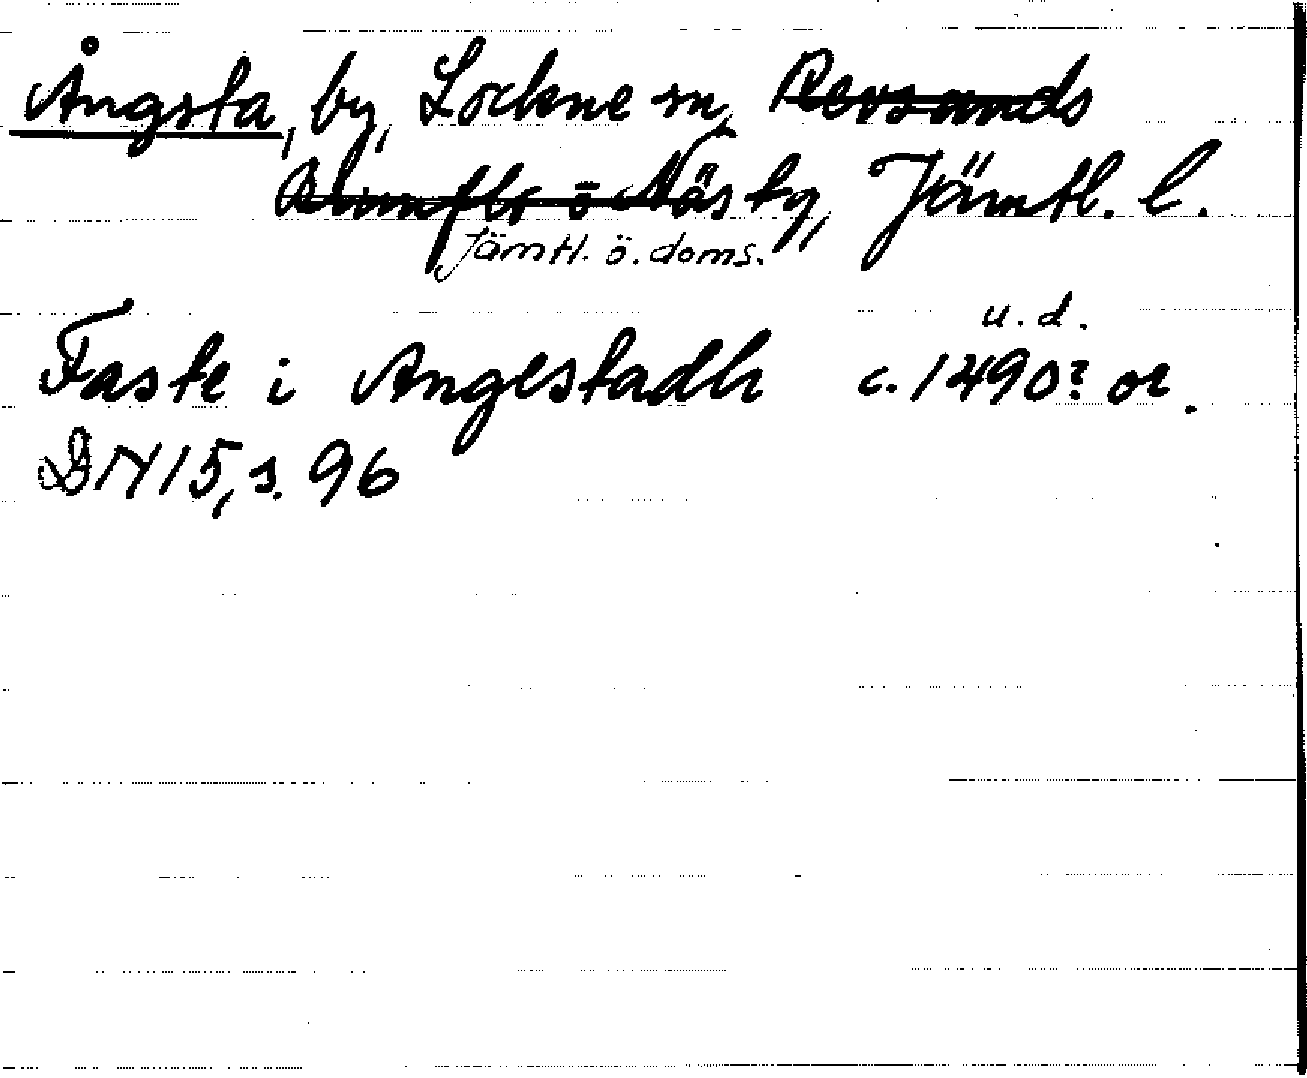 Ångsta, by, Lockne sn, Revsunds
Brunflo o Näs tg, Jämtl. l.
Jämtl. ö. doms.
u. d.
Faste i Angestadh c. 1490? or.
DN 15, s. 96